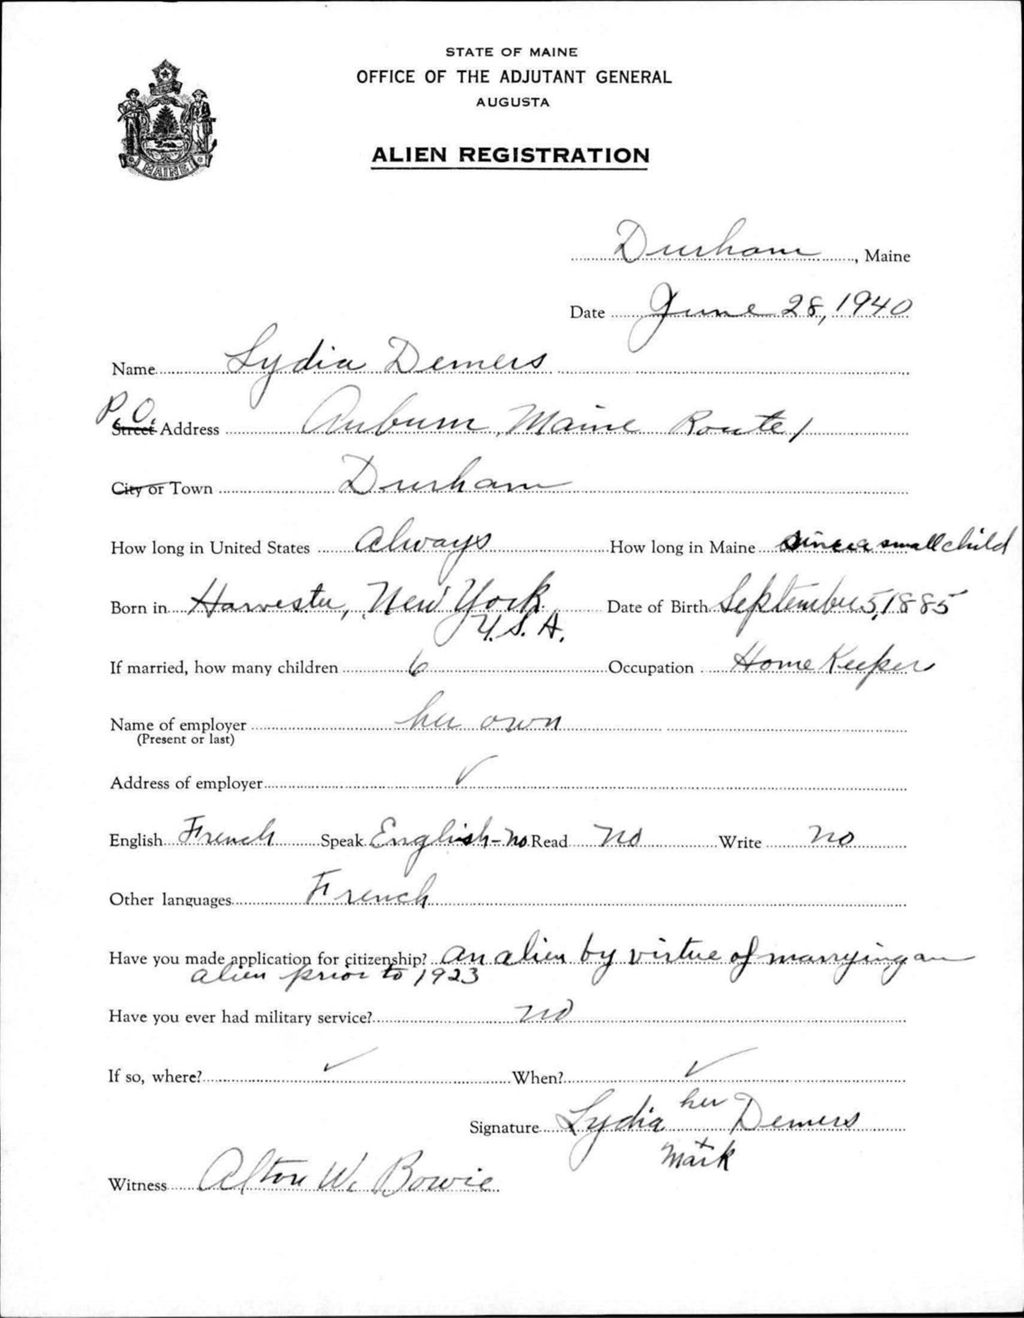 STATE OF MAINE
OFFICE OF THE ADJUTANT GENERAL
AUGUSTA
ALIEN REGISTRATION
MAINE
Durham, Maine
Date June 28, 1940
Name Lydia Demers
P.O. Street Address Auburn, Maine Route 1
City or Town Durham
How long in United States Always How long in Maine since a small child
Born in Harvester, New York Date of Birth September 5, 1885
U.S.A.
If married, how many children 6 Occupation Home Keeper
Name of employer her own
(Present or last)
Address of employer ✓
English French Speak English-no Read no Write no
Other languages French
Have you made application for citizenship? an alien by virtue of marrying an
alien prior to 1923
Have you ever had military service? no
If so, where? ✓ When? ✓
Signature Lydia her Demers
+
mark
Witness Alton W. Bowie